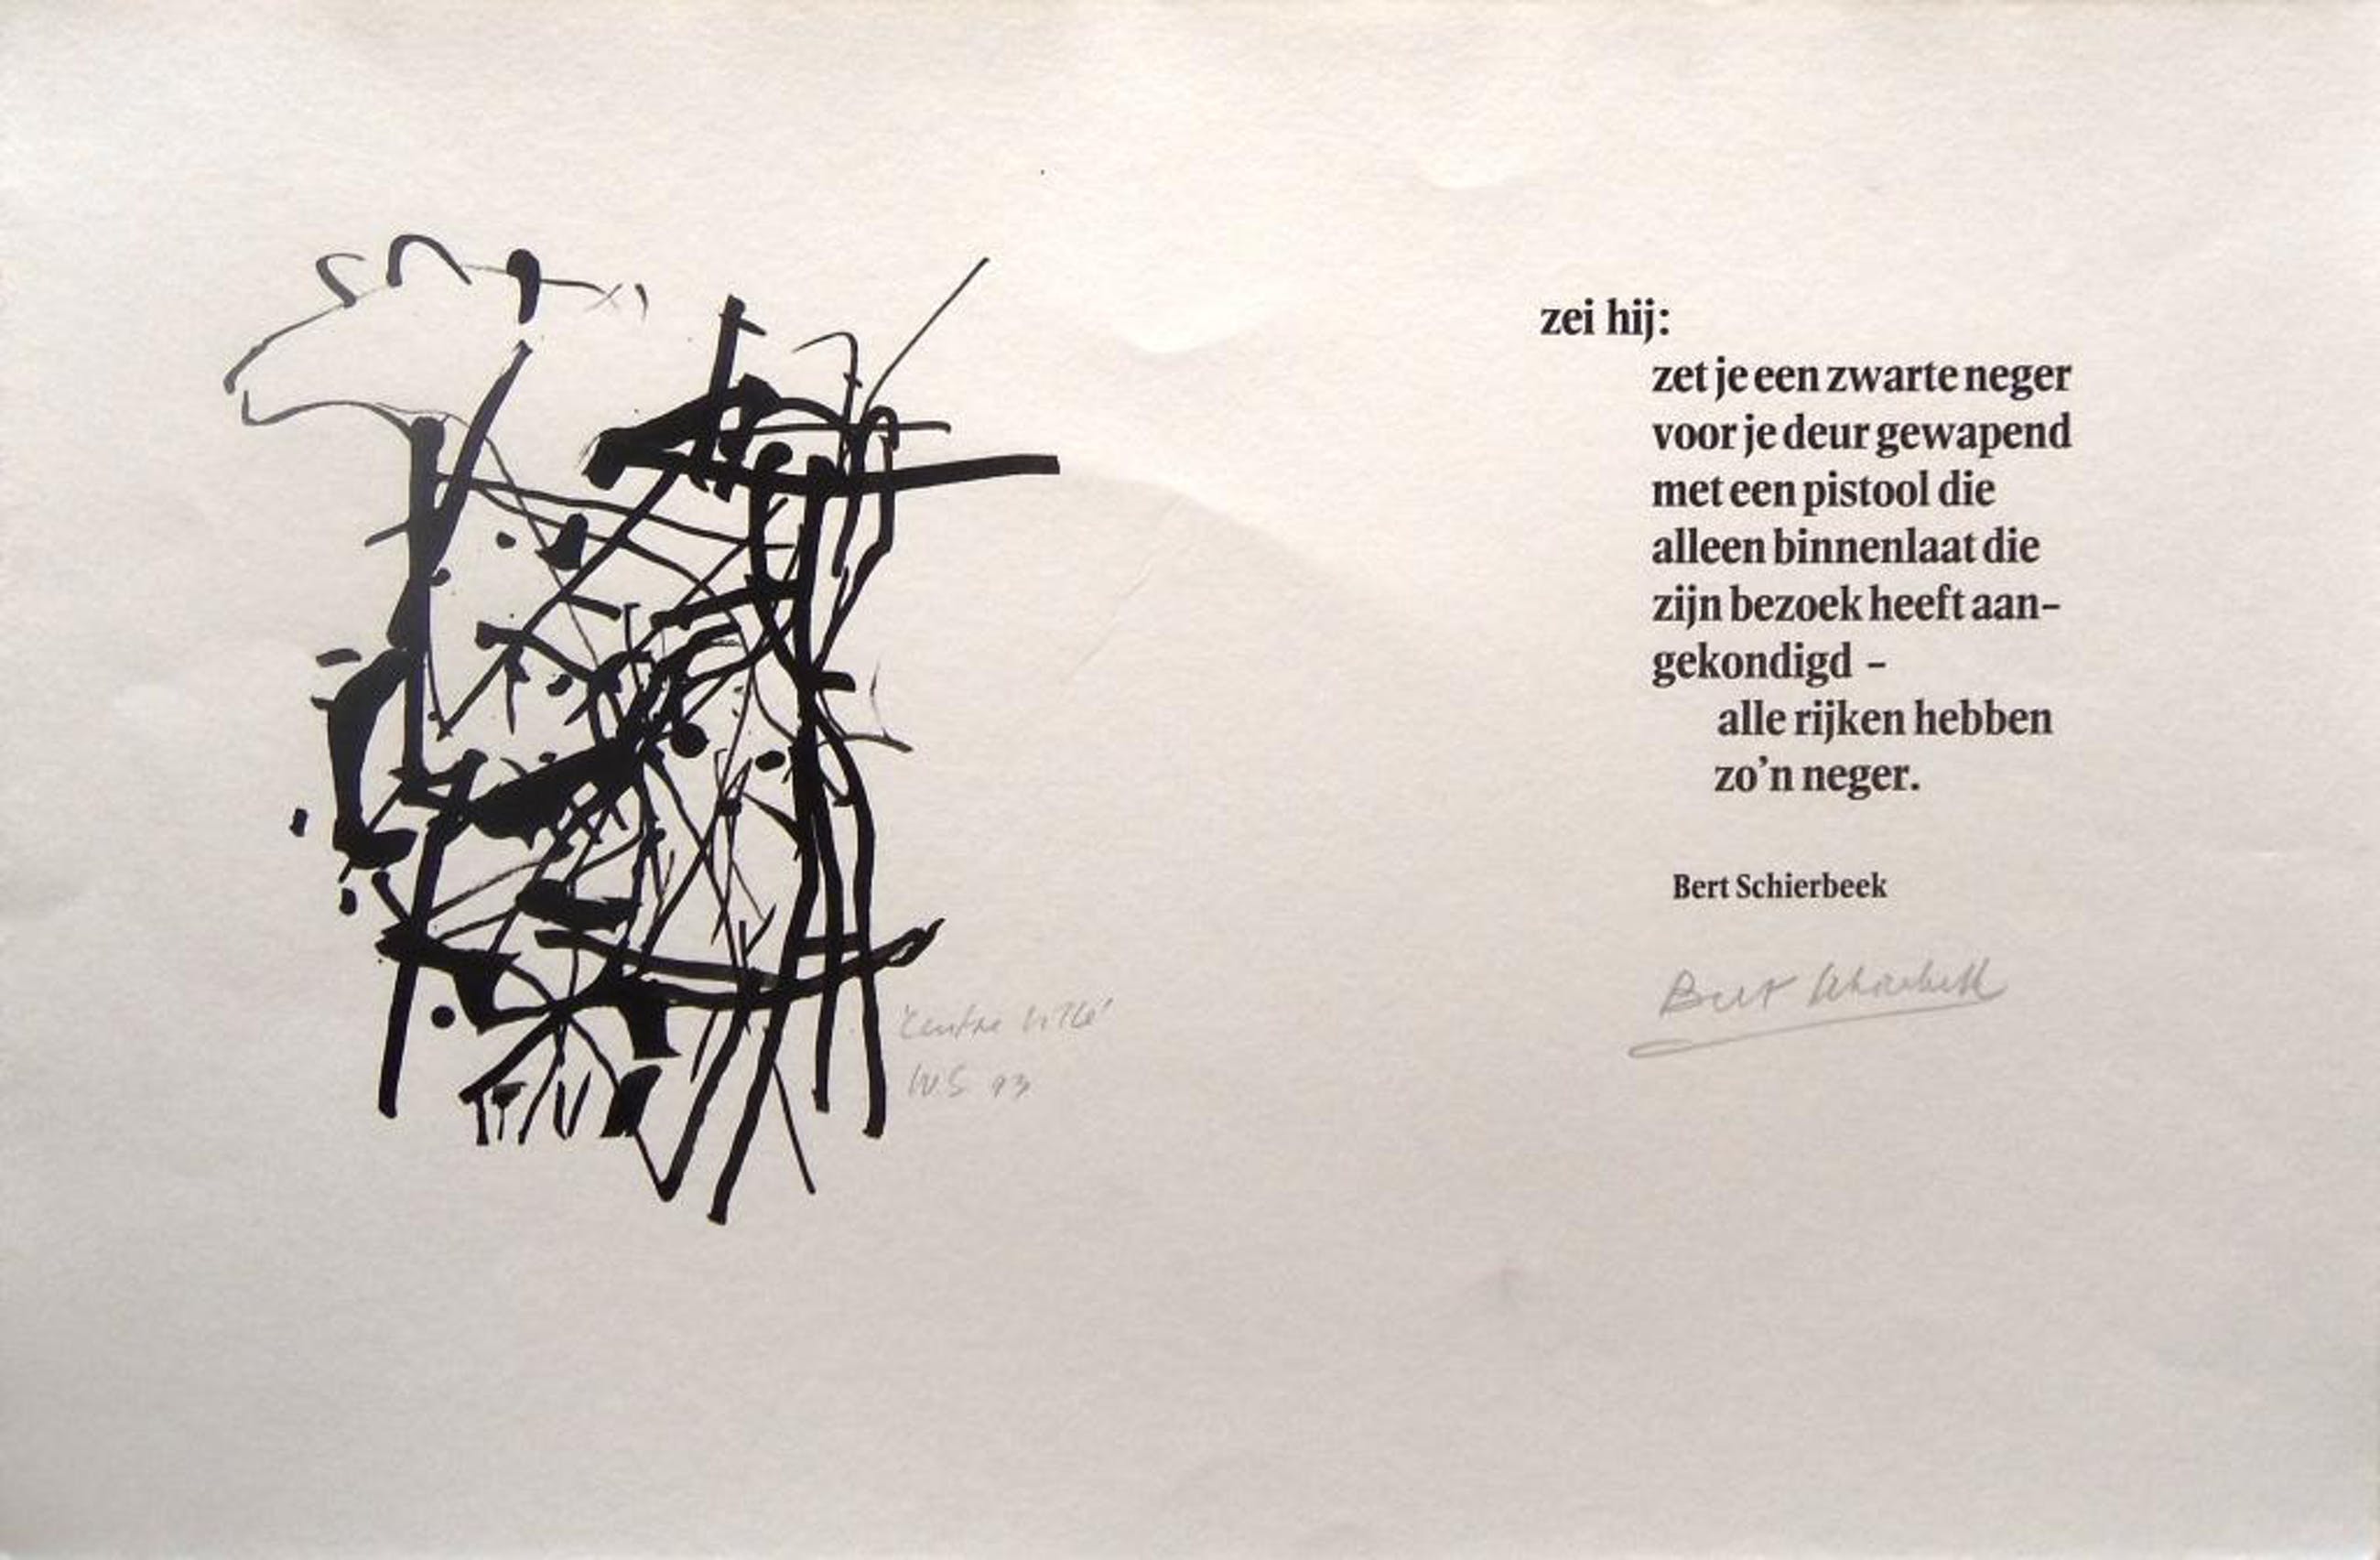 zei hij:
zet je een zwarte neger
voor je deur gewapend
met een pistool die
alleen binnenlaat die
zijn bezoek heeft aan-
gekondigd –
alle rijken hebben
zo’n neger.
Bert Schierbeek
Bert Schierbeek
'Centre Ville'
W.S. 93